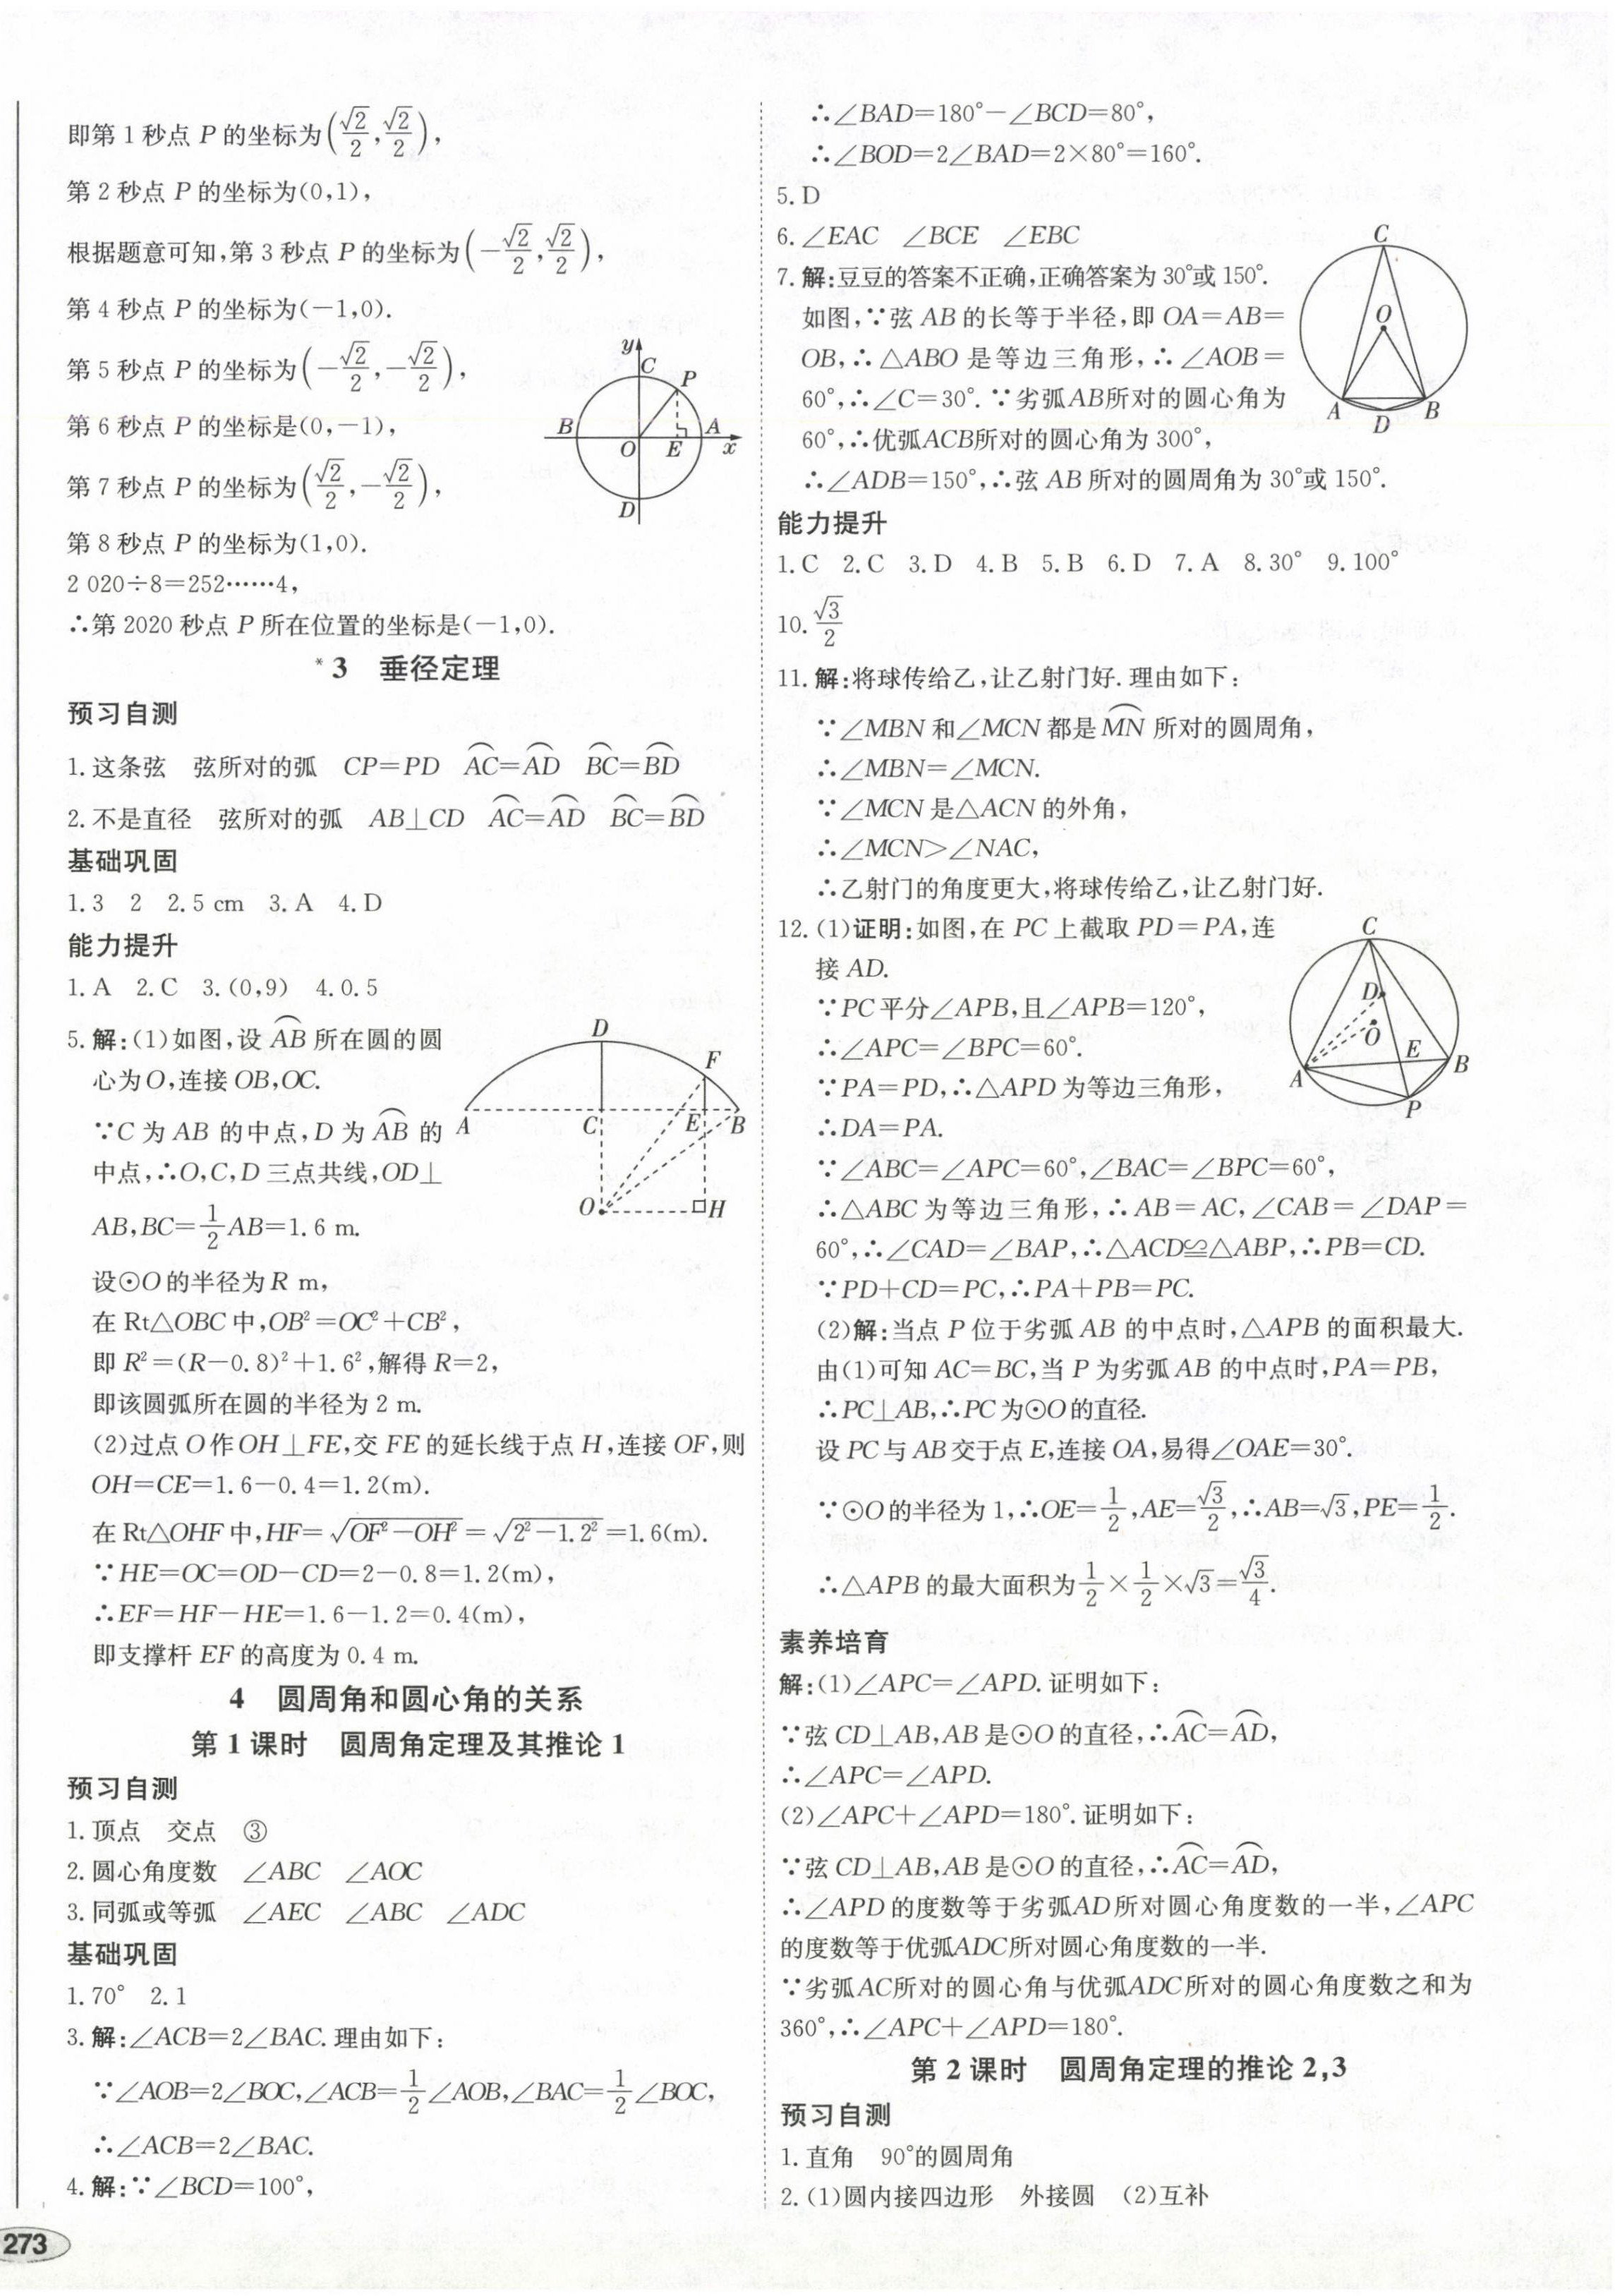 即第 1 秒点 P 的坐标为(√2/2,√2/2),
第 2 秒点 P 的坐标为(0,1),
根据题意可知,第 3 秒点 P 的坐标为(−√2/2,√2/2),
第 4 秒点 P 的坐标为(−1,0).
第 5 秒点 P 的坐标为(−√2/2,−√2/2),
第 6 秒点 P 的坐标是(0,−1),
第 7 秒点 P 的坐标为(√2/2,−√2/2),
第 8 秒点 P 的坐标为(1,0).
y
C
P
B
A
O
E
x
D
2 020÷8=252……4,
∴第 2020 秒点 P 所在位置的坐标是(−1,0).
*3 垂径定理
预习自测
1.这条弦 弦所对的弧 CP=PD ⌒AC=⌒AD ⌒BC=⌒BD
2.不是直径 弦所对的弧 AB⊥CD ⌒AC=⌒AD ⌒BC=⌒BD
基础巩固
1.3 2 2.5 cm 3.A 4.D
能力提升
1.A 2.C 3.(0,9) 4.0.5
5.解:(1)如图,设⌒AB所在圆的圆
心为O,连接 OB,OC.
∵C 为 AB 的中点,D 为⌒AB的
中点,∴O,C,D 三点共线,OD⊥
AB,BC=1/2AB=1.6 m.
D
F
A
C
E
B
O
H
设⊙O的半径为R m,
在 Rt△OBC 中,OB²=OC²+CB²,
即 R²=(R−0.8)²+1.6²,解得 R=2,
即该圆弧所在圆的半径为 2 m.
(2)过点 O作OH⊥FE,交 FE的延长线于点 H,连接 OF,则
OH=CE=1.6−0.4=1.2(m).
在 Rt△OHF 中,HF=√(OF²−OH²)=√(2²−1.2²)=1.6(m).
∵HE=OC=OD−CD=2−0.8=1.2(m),
∴EF=HF−HE=1.6−1.2=0.4(m),
即支撑杆 EF 的高度为 0.4 m.
4 圆周角和圆心角的关系
第 1 课时 圆周角定理及其推论 1
预习自测
1.顶点 交点 ③
2.圆心角度数 ∠ABC ∠AOC
3.同弧或等弧 ∠AEC ∠ABC ∠ADC
基础巩固
1.70° 2.1
3.解:∠ACB=2∠BAC.理由如下:
∵∠AOB=2∠BOC,∠ACB=1/2∠AOB,∠BAC=1/2∠BOC,
∴∠ACB=2∠BAC.
4.解:∵∠BCD=100°,
273
∴∠BAD=180°−∠BCD=80°,
∴∠BOD=2∠BAD=2×80°=160°.
5.D
6.∠EAC ∠BCE ∠EBC
7.解:豆豆的答案不正确,正确答案为 30°或 150°.
如图,∵弦 AB 的长等于半径,即 OA=AB=
OB,∴△ABO 是等边三角形,∴∠AOB=
60°,∴∠C=30°.∵劣弧AB所对的圆心角为
60°,∴优弧ACB所对的圆心角为 300°,
∴∠ADB=150°,∴弦 AB 所对的圆周角为 30°或 150°.
C
O
A
B
D
能力提升
1.C 2.C 3.D 4.B 5.B 6.D 7.A 8.30° 9.100°
10.√3/2
11.解:将球传给乙,让乙射门好.理由如下:
∵∠MBN 和∠MCN 都是⌒MN所对的圆周角,
∴∠MBN=∠MCN.
∵∠MCN 是△ACN 的外角,
∴∠MCN>∠NAC,
∴乙射门的角度更大,将球传给乙,让乙射门好.
12.(1)证明:如图,在 PC 上截取 PD=PA,连
接 AD.
∵PC平分∠APB,且∠APB=120°,
∴∠APC=∠BPC=60°.
∵PA=PD,∴△APD 为等边三角形,
∴DA=PA.
C
D
O
E
A
B
P
∵∠ABC=∠APC=60°,∠BAC=∠BPC=60°,
∴△ABC 为等边三角形,∴AB=AC,∠CAB=∠DAP=
60°,∴∠CAD=∠BAP,∴△ACD≌△ABP,∴PB=CD.
∵PD+CD=PC,∴PA+PB=PC.
(2)解:当点 P 位于劣弧 AB 的中点时,△APB 的面积最大.
由(1)可知 AC=BC,当 P 为劣弧 AB 的中点时,PA=PB,
∴PC⊥AB,∴PC为⊙O的直径.
设 PC与 AB交于点 E,连接 OA,易得∠OAE=30°.
∵⊙O的半径为 1,∴OE=1/2,AE=√3/2,∴AB=√3,PE=1/2.
∴△APB 的最大面积为1/2×1/2×√3=√3/4.
素养培育
解:(1)∠APC=∠APD.证明如下:
∵弦 CD⊥AB,AB 是⊙O 的直径,∴⌒AC=⌒AD,
∴∠APC=∠APD.
(2)∠APC+∠APD=180°.证明如下:
∵弦 CD⊥AB,AB 是⊙O 的直径,∴⌒AC=⌒AD,
∴∠APD 的度数等于劣弧AD所对圆心角度数的一半,∠APC
的度数等于优弧ADC所对圆心角度数的一半.
∵劣弧AC所对的圆心角与优弧ADC所对的圆心角度数之和为
360°,∴∠APC+∠APD=180°.
第 2 课时 圆周角定理的推论 2,3
预习自测
1.直角 90°的圆周角
2.(1)圆内接四边形 外接圆 (2)互补